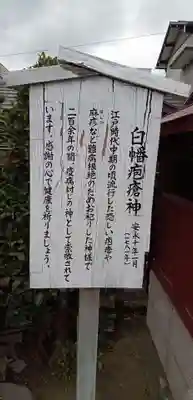 白幡疱瘡神
安永十年一月
(一七八一年)
江戸時代中期の頃流行した恐しい疱瘡や
はしか
麻疹など難病根絶のためお祀りした神様で
二百余年の間、疫病封じの神として崇敬されて
います。感謝の心で健康を祈りましょう。